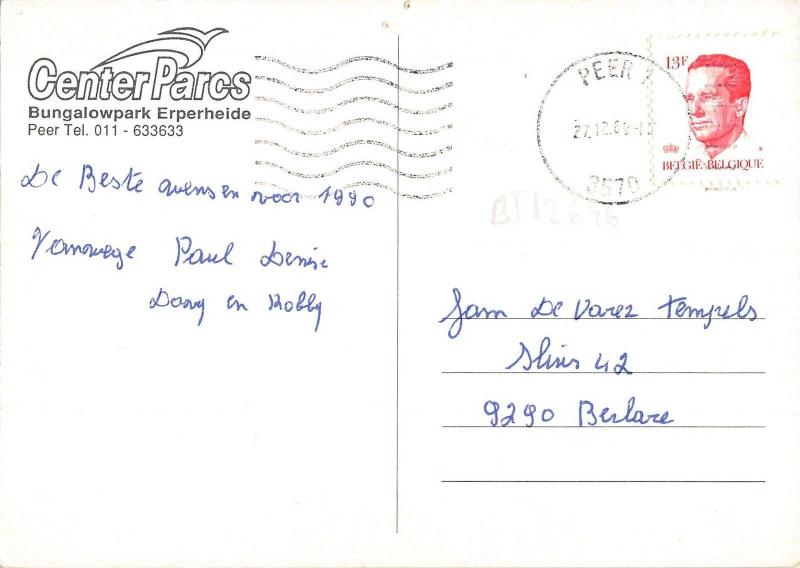 Center Parcs
Bungalowpark Erperheide
Peer Tel. 011 - 633633
De Beste wensen voor 1990
Vanwege Paul Denise
Dany en Robby
PEER 1
27.12.89-15
3570
13F
BELGIË-BELGIQUE
BT12676
Fam De Varez Tempels
Sluis 42
9290 Berlare